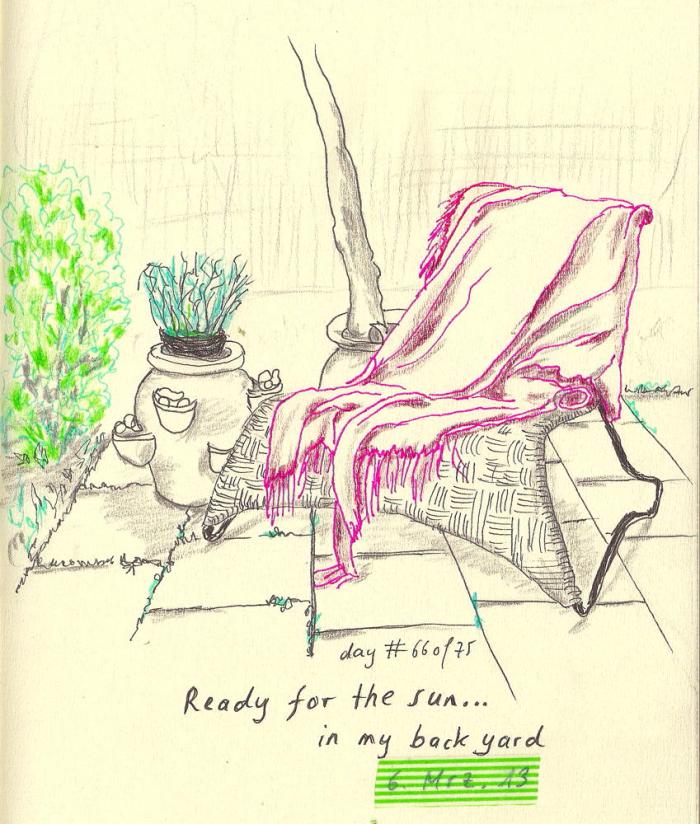 day #66 of 75
Ready for the sun...
in my back yard
6. Mrz. 13